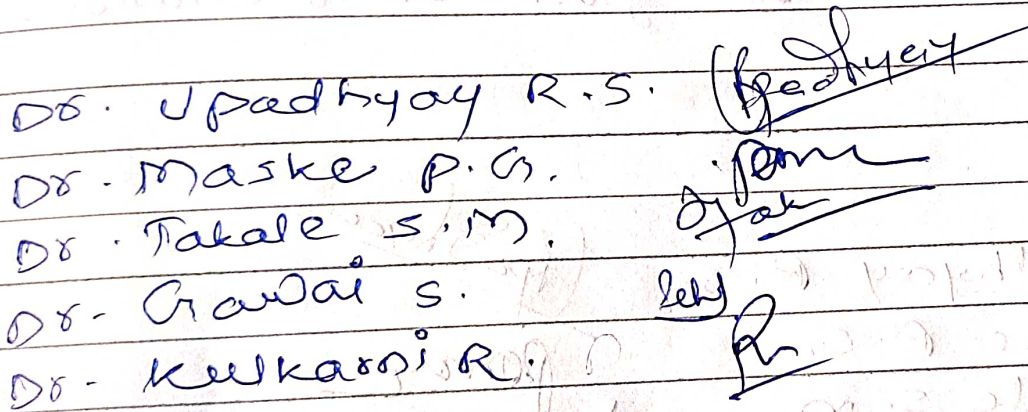 Dr. Upadhyay R.S. Upadhyay
Dr. Maske P.G.
Dr. Takale S.M.
Dr. Gawai S.
Dr. Kulkarni R.